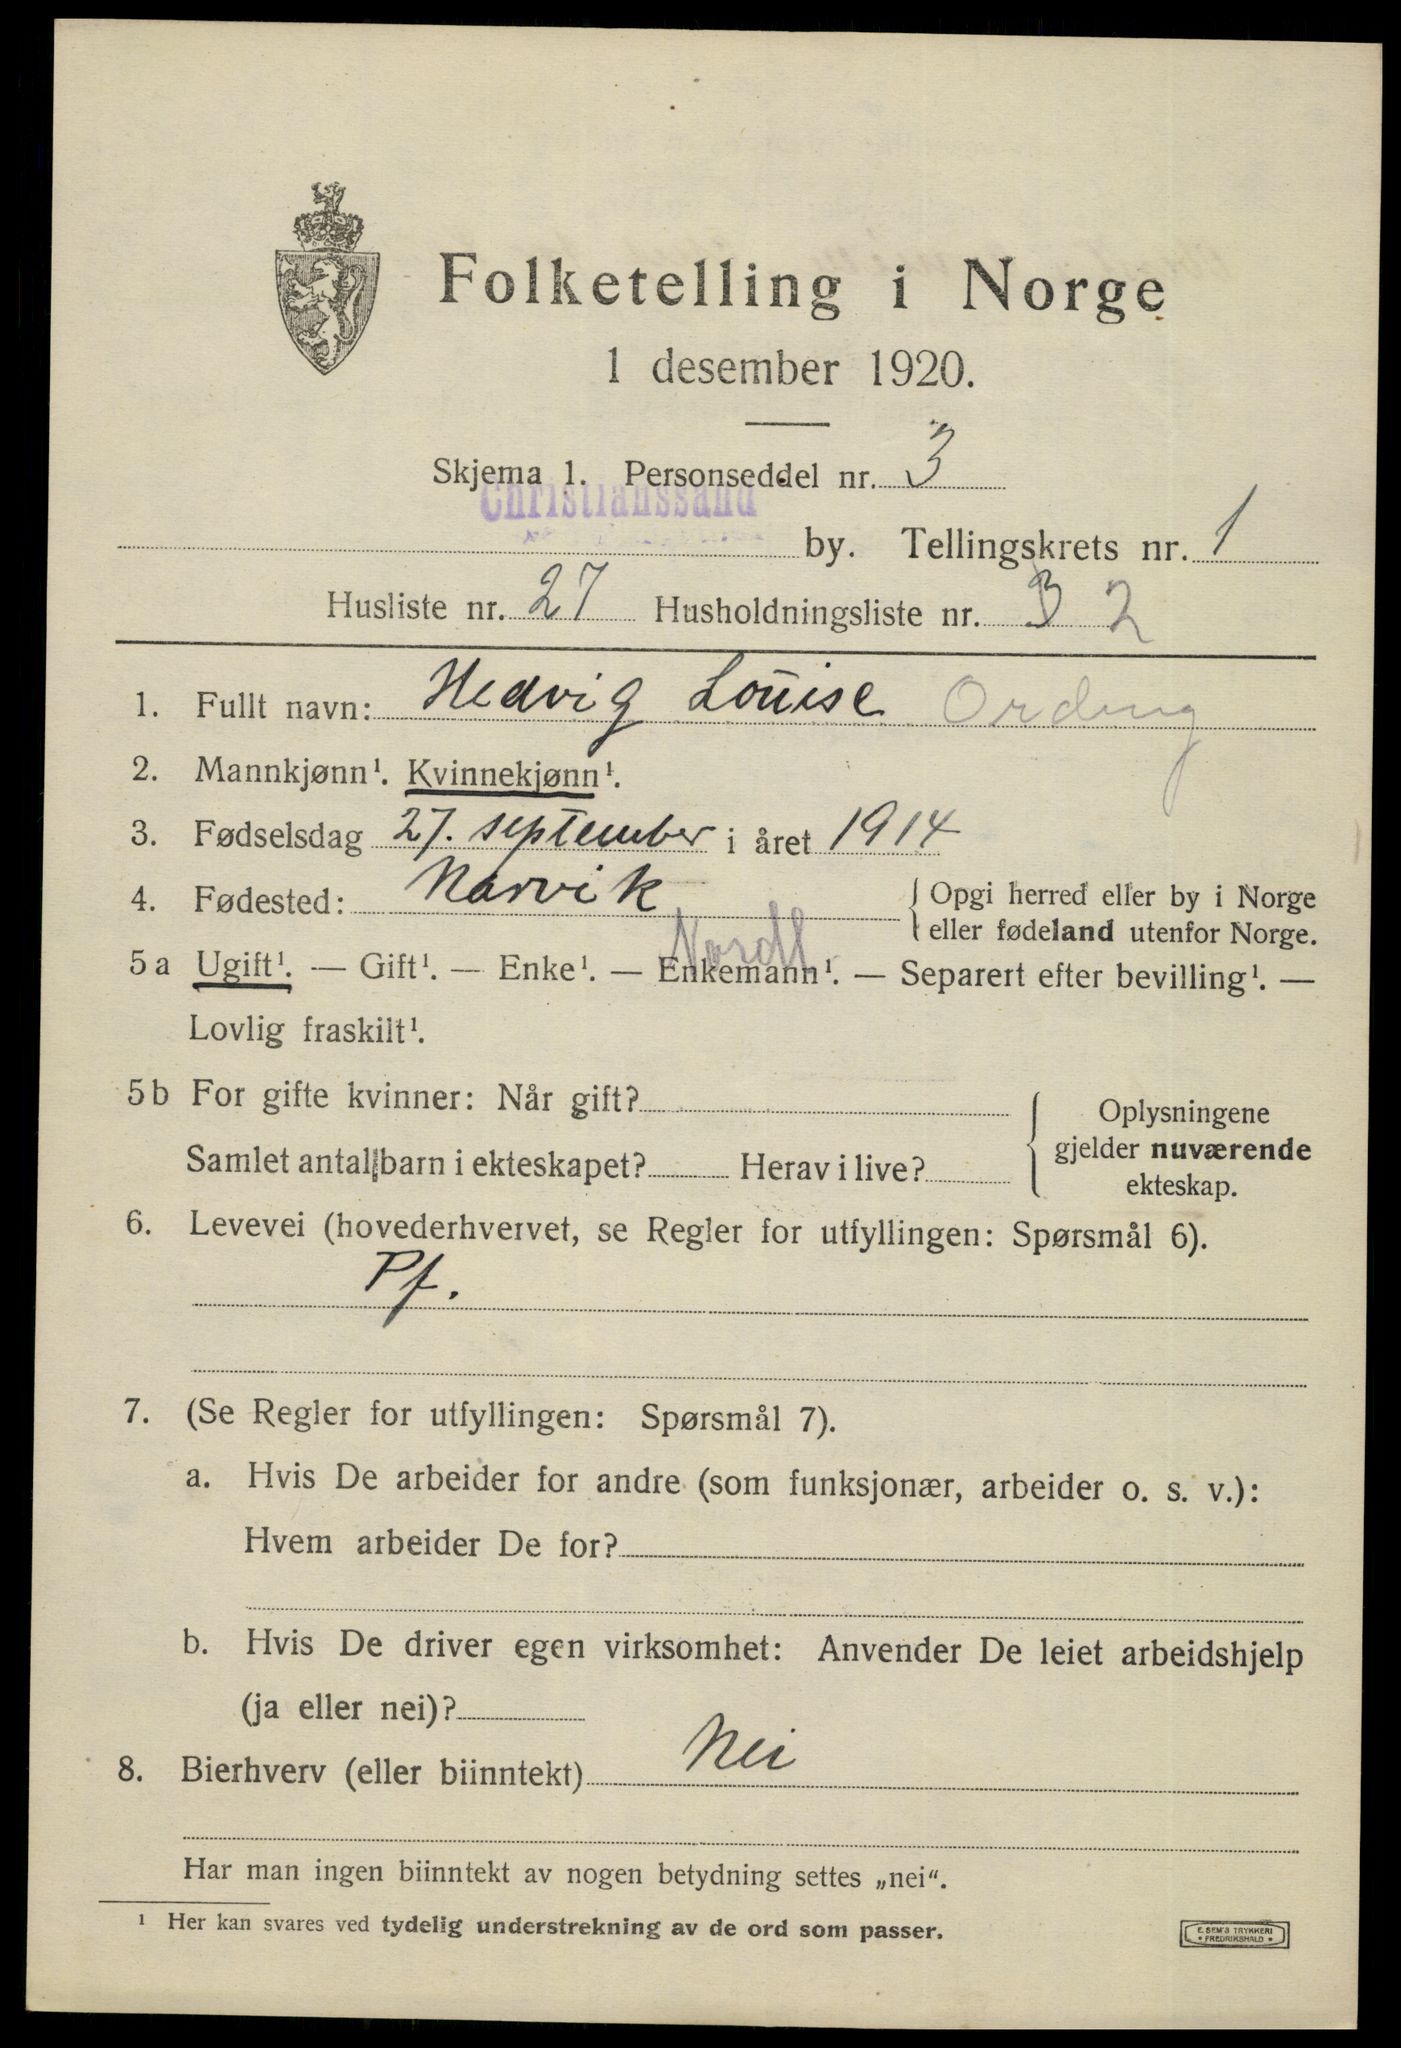 Folketelling i Norge
1 desember 1920.
Skjema 1. Personseddel nr. 3
Christianssand by. Tellingskrets nr. 1
Husliste nr. 27 Husholdningsliste nr. 3 2
1. Fullt navn: Hedvig Louise Ording
2. Mannkjønn¹. Kvinnekjønn¹.
3. Fødselsdag 27. september i året 1914
4. Fødested: Narvik { Opgi herred eller by i Norge
eller fødeland utenfor Norge.
Nordl.
5 a Ugift¹. — Gift¹. — Enke¹. — Enkemann¹. — Separert efter bevilling¹. —
Lovlig fraskilt¹.
5 b For gifte kvinner: Når gift?
Samlet antal barn i ekteskapet? Herav i live?
Oplysningene
gjelder nuværende
ekteskap.
6. Levevei (hovederhvervet, se Regler for utfyllingen: Spørsmål 6).
Pf.
7. (Se Regler for utfyllingen: Spørsmål 7).
a. Hvis De arbeider for andre (som funksjonær, arbeider o. s. v.):
Hvem arbeider De for?
b. Hvis De driver egen virksomhet: Anvender De leiet arbeidshjelp
(ja eller nei)?
8. Bierhverv (eller biinntekt) Nei
Har man ingen biinntekt av nogen betydning settes „nei“.
¹ Her kan svares ved tydelig understrekning av de ord som passer.
E. SEM'S TRYKKERI
FREDRIKSHALD